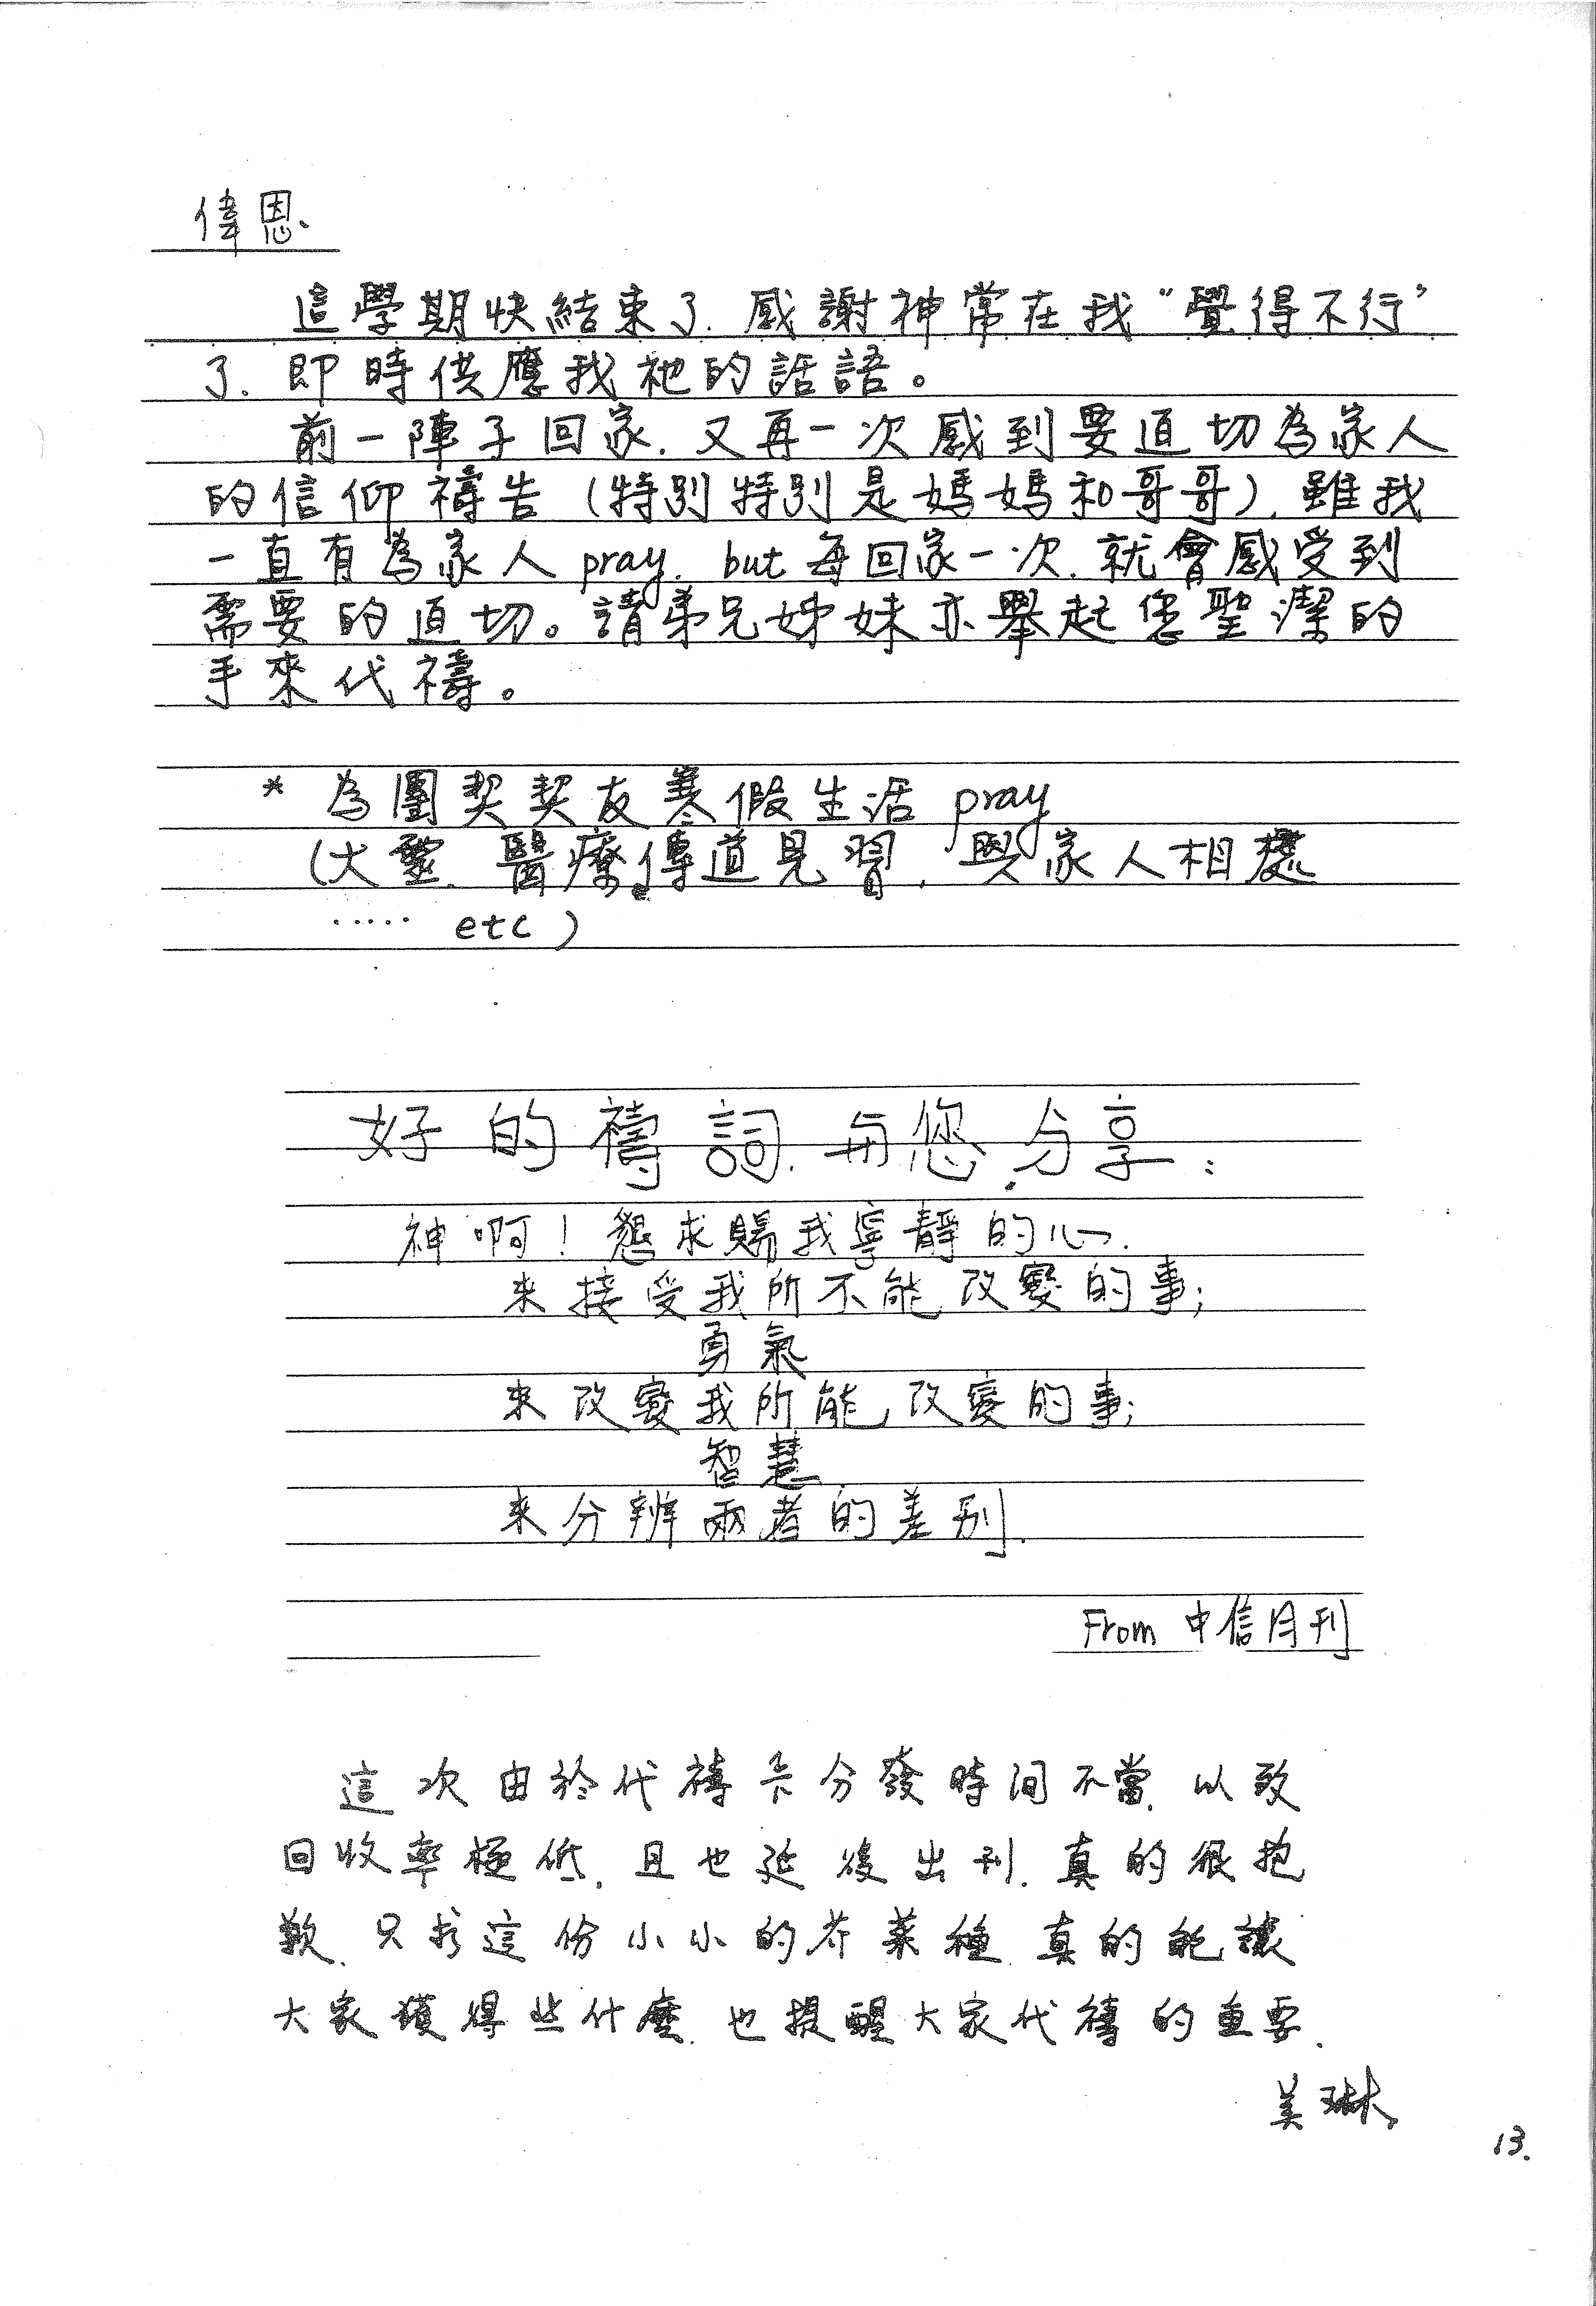 偉恩、
這學期快結束了. 感謝神常在我"覺得不行"
了. 即時供應我祂的話語。
前一陣子回家. 又再一次感到要迫切為家人
的信仰禱告 (特別特別是媽媽和哥哥). 雖我
一直有為家人 pray. but 每回家一次. 就會感受到
需要的迫切。請弟兄姊妹亦舉起您聖潔的
手來代禱。
* 為團契契友寒假生活 pray
(大靈. 醫療傳道見習. 與家人相處
..... etc )
好的禱詞. 与您分享:
神啊! 懇求賜我寧靜的心.
來接受我所不能改變的事;
勇氣
來改變我所能改變的事;
智慧
來分辨兩者的差別.
From 中信月刊
這次由於代禱卡分發時间不當. 以致
回收率極低. 且也延後出刊. 真的很抱
歉. 只求這份小小的芥菜種 真的能讓
大家獲得些什麼. 也提醒大家代禱的重要.
美琳
13.